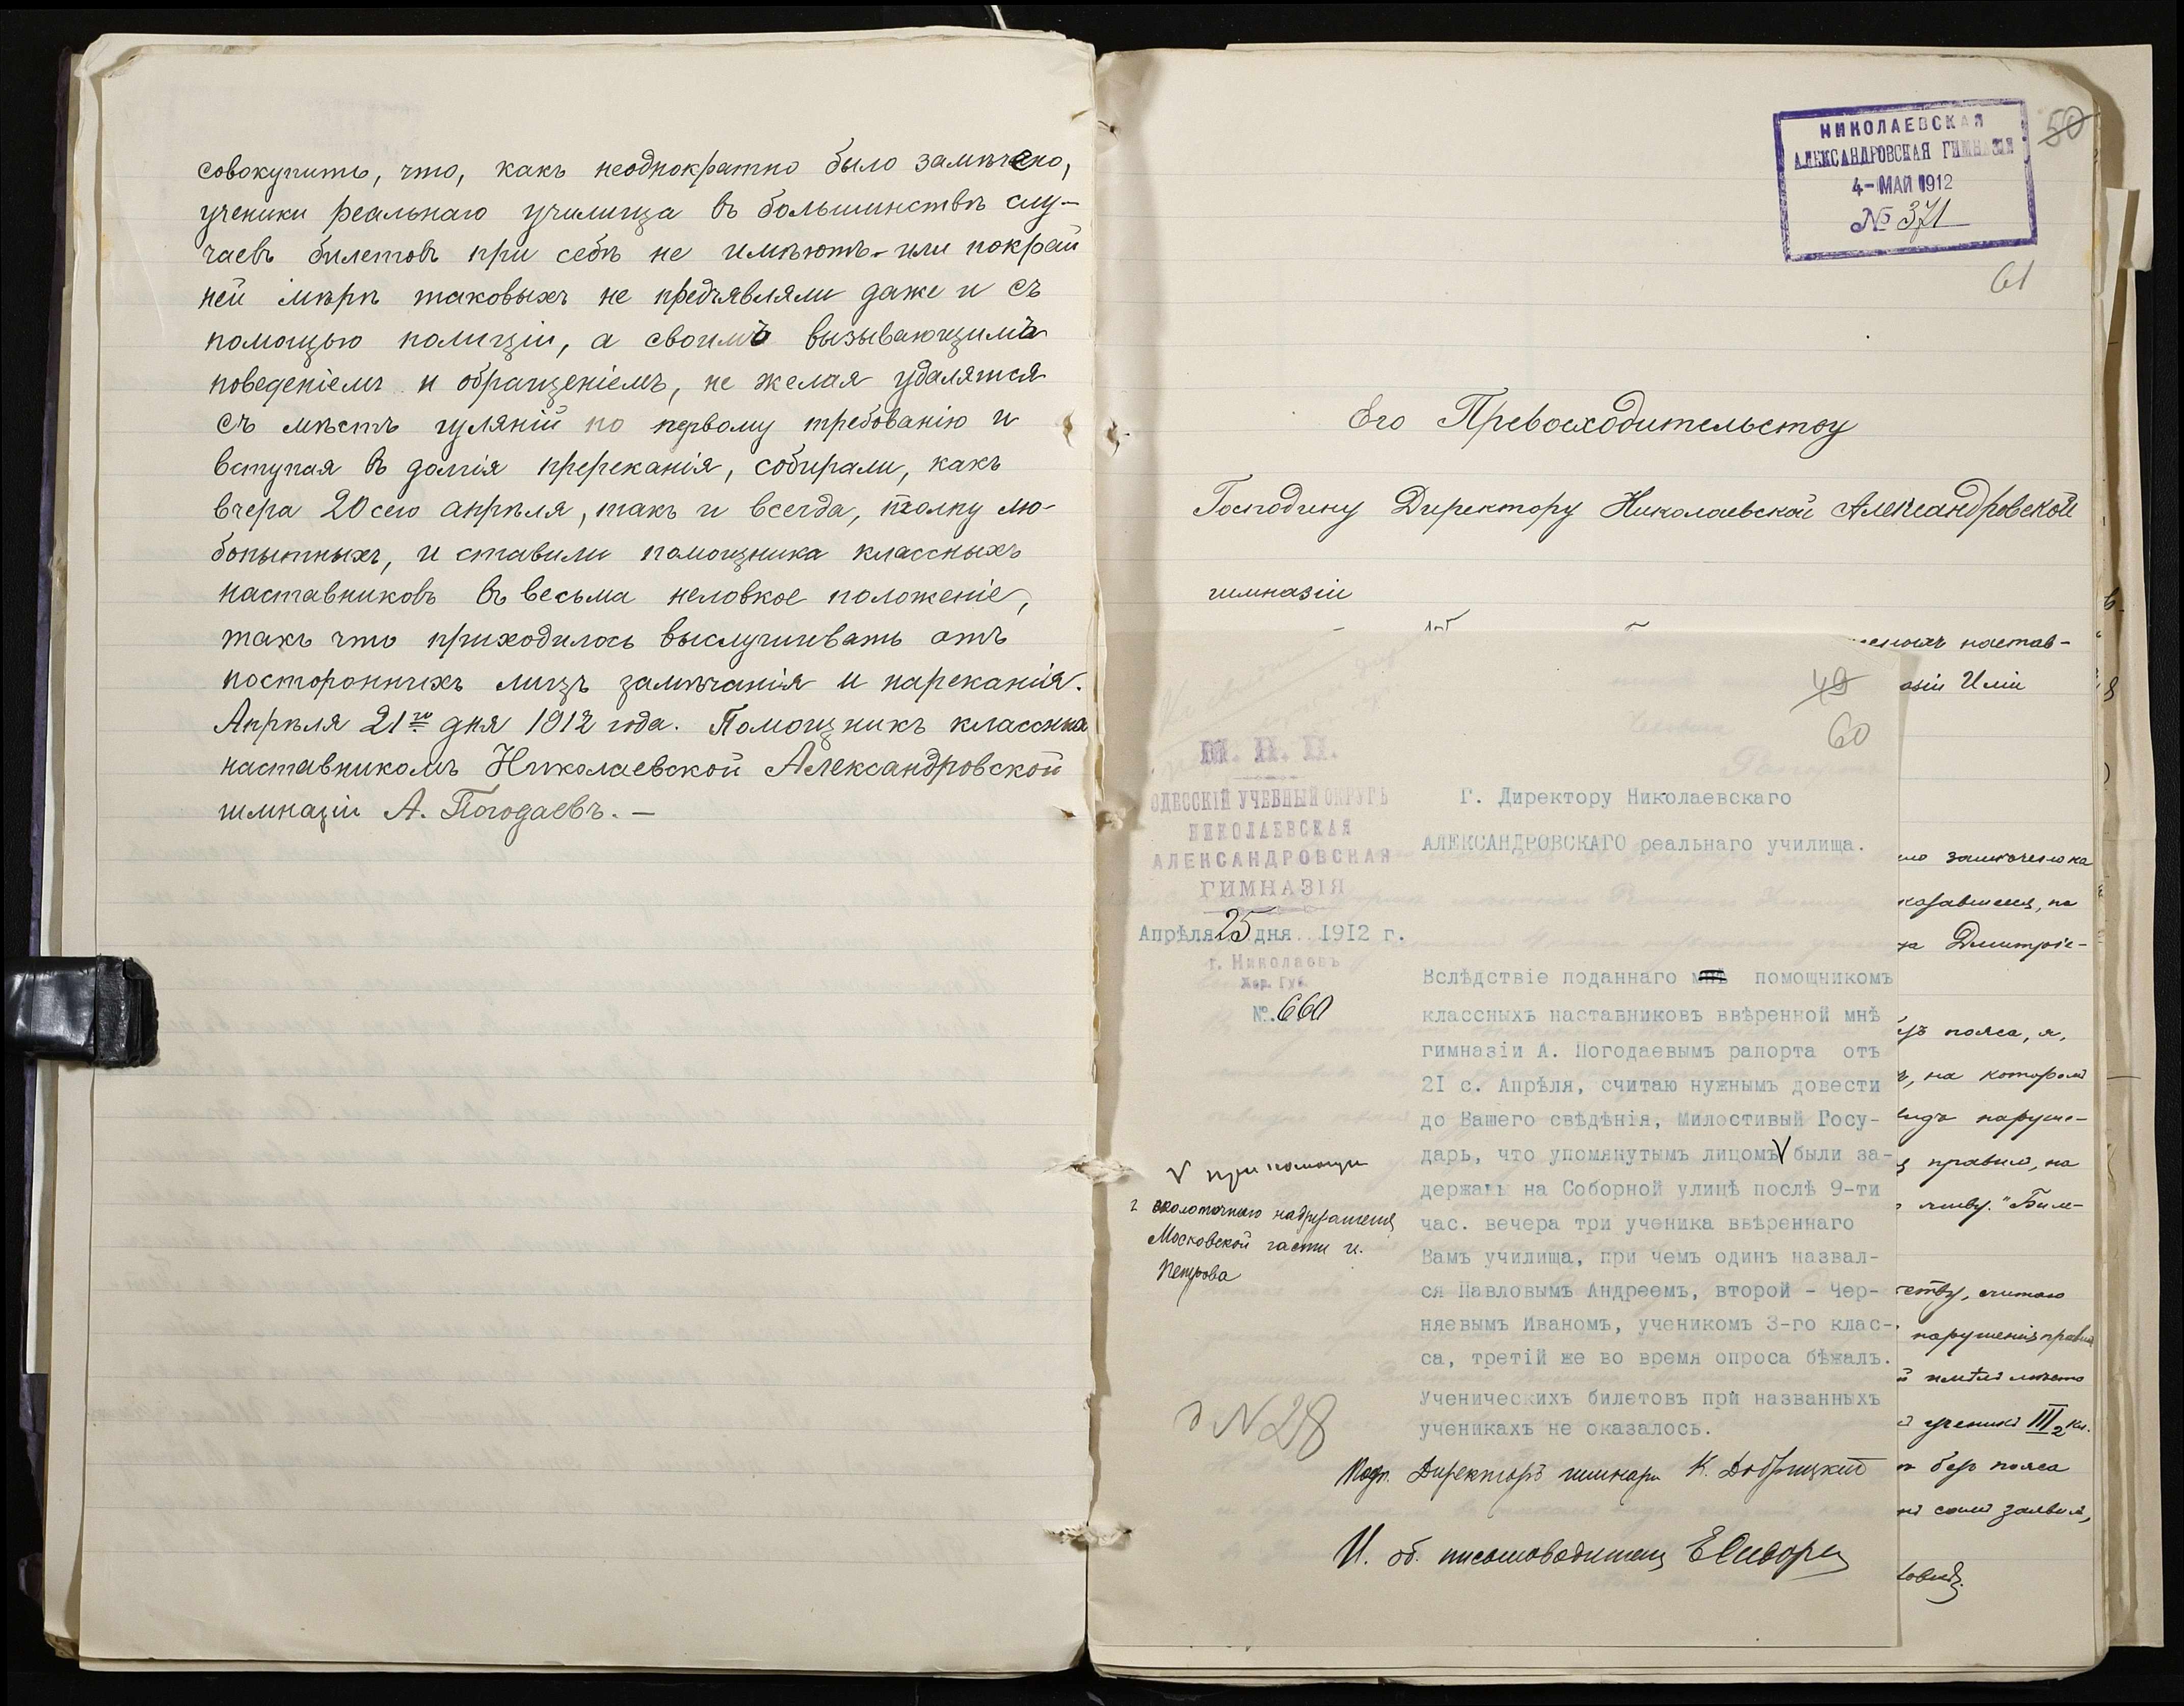 совокупить, что, какъ неоднократно было замѣчено,
ученики реальнаго училища въ большинствѣ слу-
чаевъ билетовъ при себѣ не имѣютъ - или покрай
ней мѣрѣ таковыхъ не предъявляли даже и съ
помощью полиціи, а своимъ вызывающимъ
поведеніемъ и обращеніемъ, не желая удалятся
съ мѣстъ гуляній по первому требованію и
вступая въ долгія пререканія, собирали, какъ
вчера 20 сего апрѣля, такъ и всегда, толпу лю-
бопытныхъ, и ставили помощника классныхъ
наставниковъ въ весьма неловкое положеніе,
такъ что приходилось выслушивать отъ
постороннихъ лицъ замѣчанія и нареканія.
Апрѣля 21го дня 1912 года. Помощникъ классна
наставникомъ Николаевской Александровской
гимназіи А. Погодаевъ. —
НИКОЛАЕВСКАЯ
АЛЕКСАНДРОВСКАЯ ГИМНАЗІЯ
4 - МАЙ 1912
№ 371
50
61
Его Превосходительству
Господину Директору Николаевской Александровской
гимназіи
настав-
азіи Иліи
49
60
М. Н. П.
ОДЕССКІЙ УЧЕБНЫЙ ОКРУГЪ
НИКОЛАЕВСКАЯ
АЛЕКСАНДРОВСКАЯ
ГИМНАЗІЯ
Апрѣля 25 дня 1912 г.
г. Николаевъ
Хер. Губ.
№ 660
Г. Директору Николаевскаго
АЛЕКСАНДРОВСКАГО реальнаго училища.
Вслѣдствіе поданнаго мнѣ помощникомъ
классныхъ наставниковъ ввѣренной мнѣ
гимназіи А. Погодаевымъ рапорта отъ
21 с. Апрѣля, считаю нужнымъ довести
до Вашего свѣдѣнія, Милостивый Госу-
дарь, что упомянутымъ лицомъ V были за-
держаны на Соборной улицѣ послѣ 9-ти
час. вечера три ученика ввѣреннаго
Вамъ училища, при чемъ одинъ назвал-
ся Павловымъ Андреемъ, второй - Чер-
няевымъ Иваномъ, ученикомъ 3-го клас-
са, третій же во время опроса бѣжалъ.
Ученическихъ билетовъ при названныхъ
ученикахъ не оказалось.
V при помощи
г околоточнаго надзирателя
Московской части г.
Петрова
д N 28
Подп. Директоръ гимназіи К. Добрицкій
И. об. письмоводителя
Дмитріе-
пояса, я,
на которой
наруше-
правил, на
Биле-
считаю
нарушенія правил
имѣлъ мѣсто
ученикъ III2 кл.
безъ пояса
самъ заявилъ,